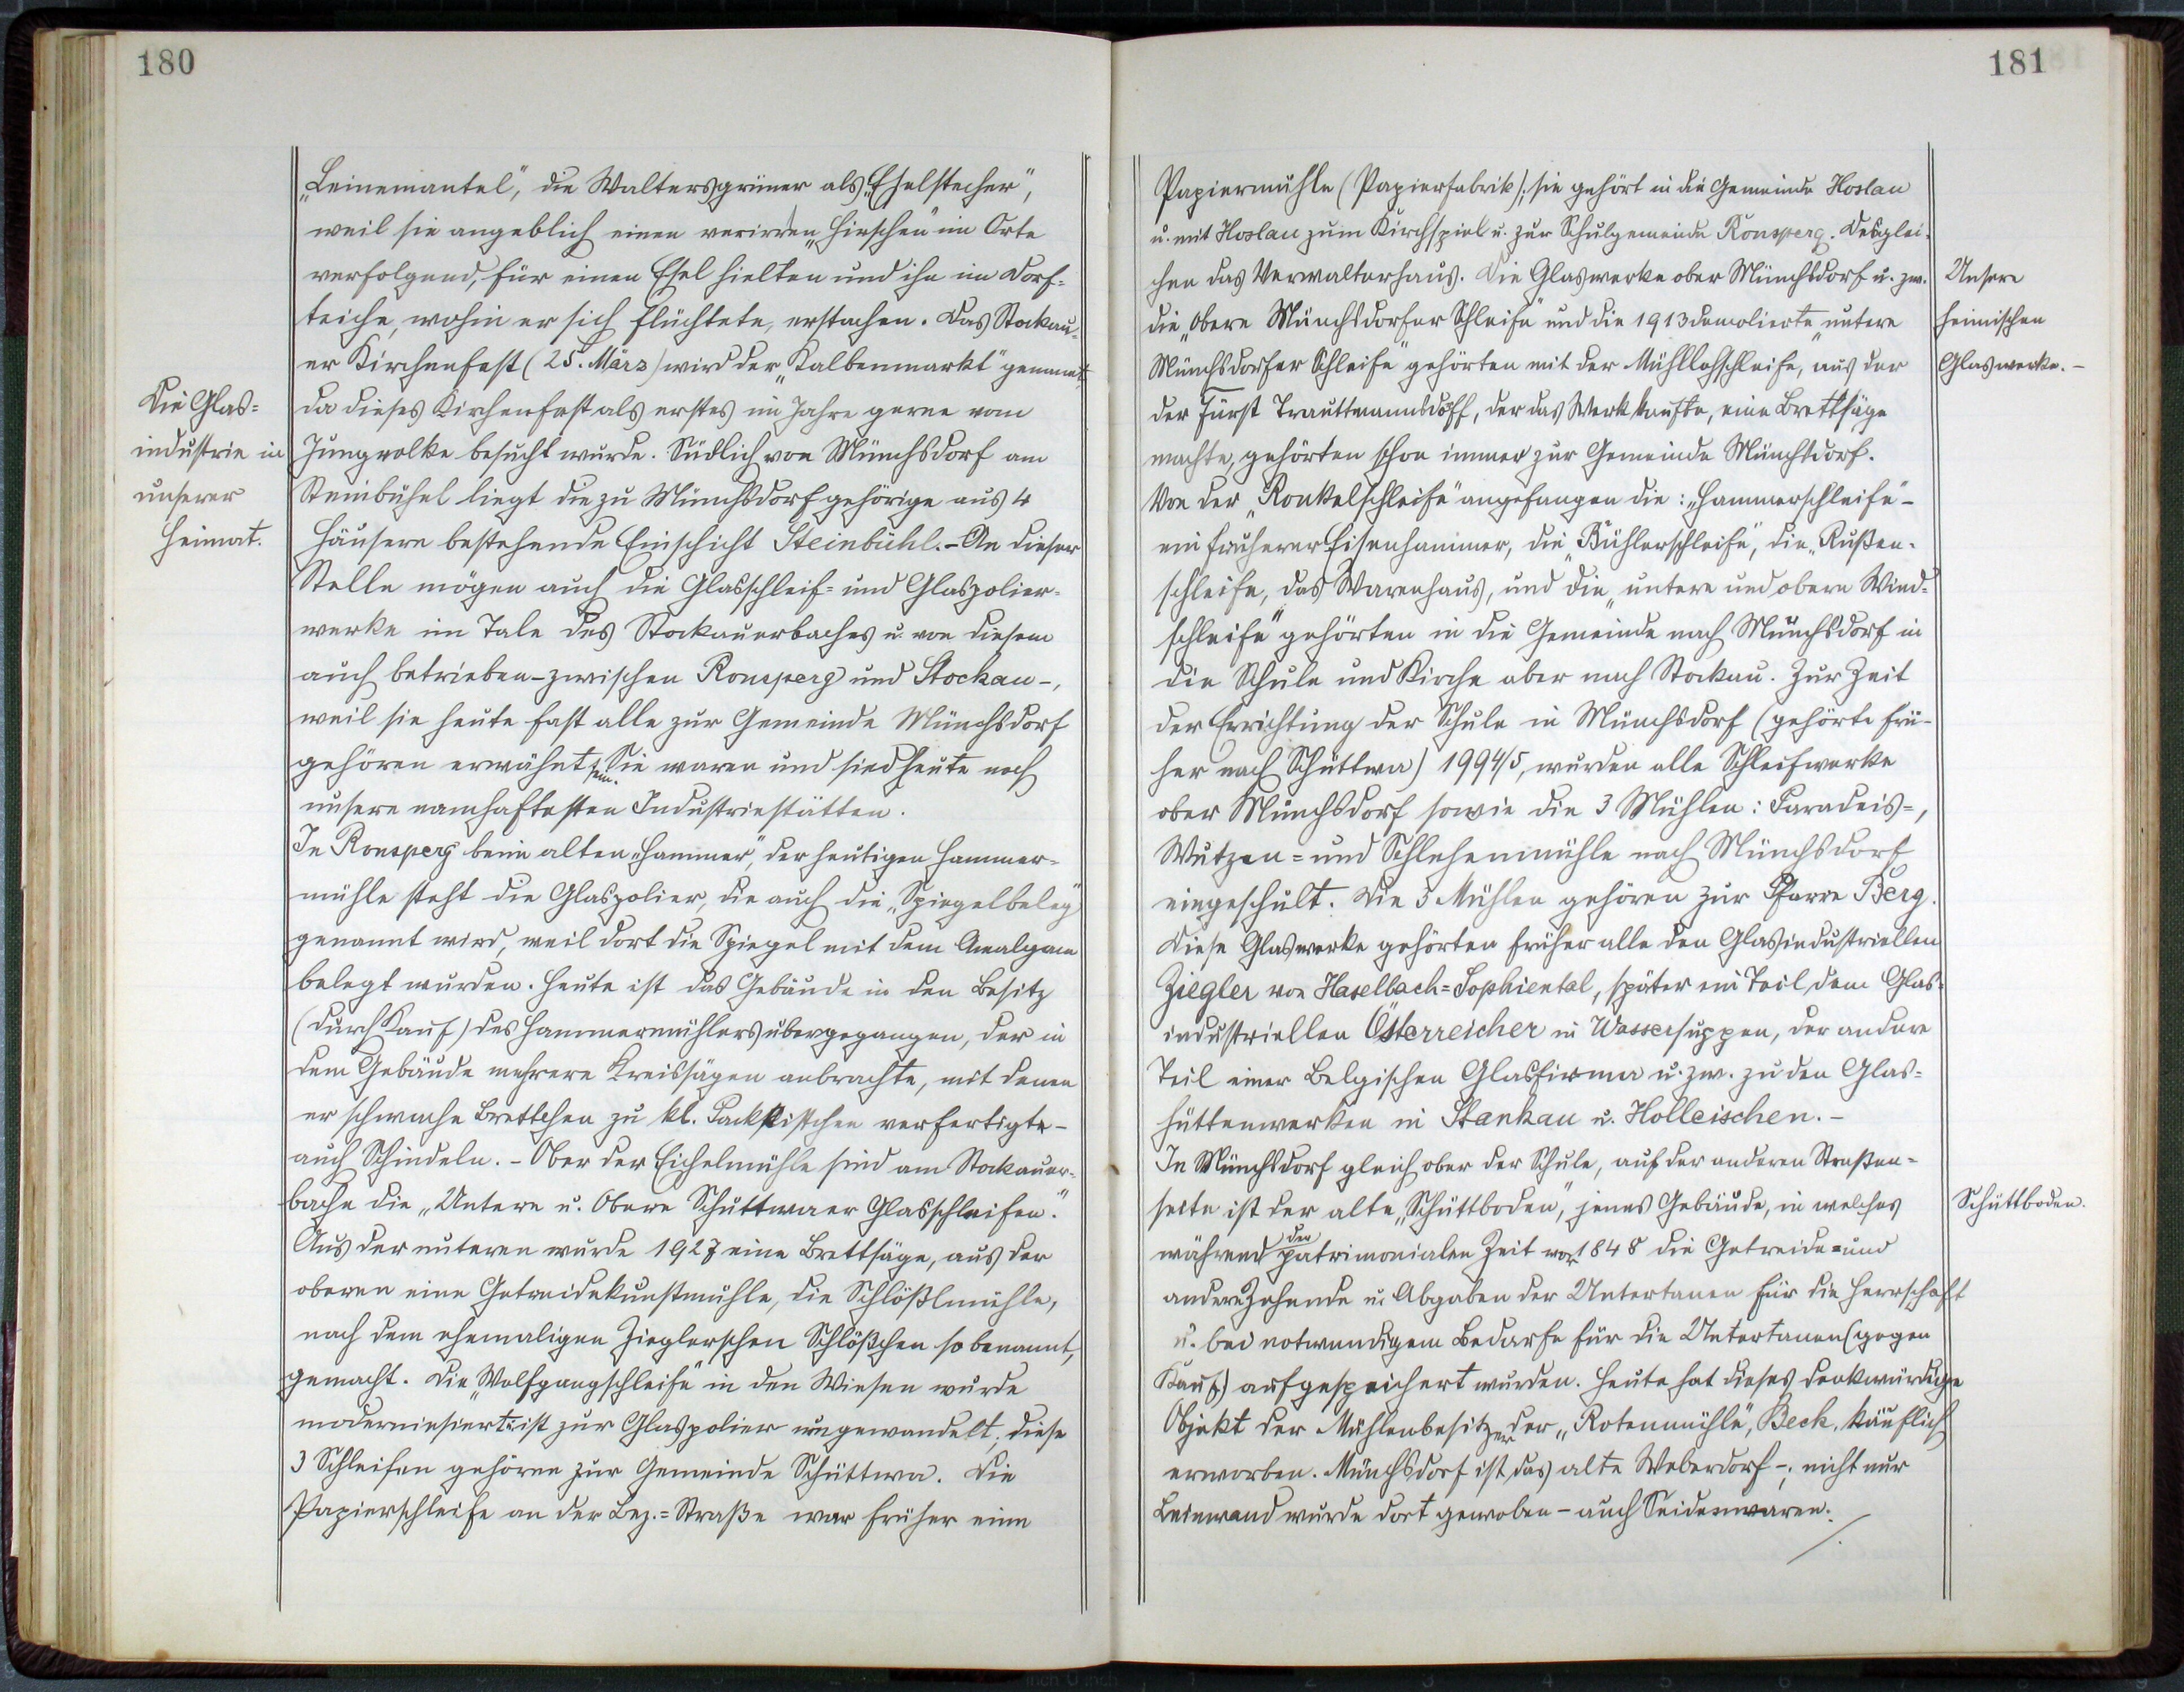 180
„Leinemantel", die Waltersgrüner als „Eselstecher",
weil sie angeblich einen verirrten „Hirschen" im Orte
verfolgend, für einen Esel hielten und ihn im Dorf=
teiche, wohin er sich flüchtete, erstachen. Das Stockau=
er Kirchenfest (25. März) wird der „Kalbenmarkt" genannt
da dieses Kirchenfest als erstes im Jahre gerne vom
Jungvolke besucht wurde. Südlich von Münchsdorf am
Steinbühel liegt die zu Münchsdorf gehörige aus 4
Häusern bestehende Einschicht Steinbühl. – An dieser
Stelle mögen auch die Glasschleif= und Glaspolier=
werke im Tale des Stockauerbaches u. von diesem
auch betrieben – zwischen Ronsperg und Stockau –,
weil sie heute fast alle zur Gemeinde Münchsdorf
gehören erwähnt sein. Sie waren und sind heute noch
unsere namhaftesten Industriestätten.
In Ronsperg beim alten „Hammer", der heutigen Hammer=
mühle steht die Glaspolier, die auch die „Spiegelbeleg"
genannt wird, weil dort die Spiegel mit dem Amalgam
belegt wurden. Heute ist das Gebäude in den Besitz
(durch Kauf) des Hammermühlers übergegangen, der in
dem Gebäude mehrere Kreissägen anbrachte, mit denen
er schwache Brettchen zu kl. Packkistchen verfertigte –
auch Schindeln. – Ober der Eichelmühle sind am Stockauer=
bache die „Untere u. Obere Schüttwaer Glasschleifen."
Aus der unteren wurde 1927 eine Brettsäge, aus der
oberen eine Getreidekunstmühle, die Schlößlmühle,
nach dem ehemaligen Zieglerschen Schlößchen so benannt,
gemacht. Die „Wolfgangschleife" in den Wiesen wurde
moderniesiert: ist zur Glaspolier umgewandelt; diese
3 Schleifen gehören zur Gemeinde Schüttwa. Die
Papierschleife an der Bez.=Straße war früher eine
Die Glas=
industrie in
unserer
Heimat.
181
Papiermühle (Papierfabrik); sie gehört in die Gemeinde Hoslau
u. mit Hoslau zum Kirchspiel u. zur Schulgemeinde Ronsperg. Desglei=
chen das Verwalterhaus. Die Glaswerke ober Münchsdorf u. zw.
die „Obere Münchsdorfer Schleife" und die 1913 demolierte „untere
Münchsdorfer Schleife" gehörten mit der Mühllohschleife, aus der
der Fürst Trauttmannsdorff, der das Werk kaufte, eine Brettsäge
machte, gehörten schon immer zur Gemeinde Münchsdorf.
Von der „Ronkelschleife" angefangen die: „Hammerschleife" –
ein früherer Eisenhammer, die „Bühlerschleife", die „Rußen=
schleife, das Warenhaus, und die „untere und obere Wind=
schleife" gehörten in die Gemeinde nach Münchsdorf in
die Schule und Kirche aber nach Stockau. Zur Zeit
der Errichtung der Schule in Münchsdorf (gehörte frü=
her nach Schüttwa) 1994/5, wurden alle Schleifwerke
ober Münchsdorf sowie die 3 Mühlen: Paradeis=,
Wutzen= und Schlehenmühle nach Münchsdorf
eingeschult. Die 3 Mühlen gehören zur Pfarre Berg.
Diese Glaswerke gehörten früher alle den Glasindustriellen
Ziegler von Haselbach=Sophiental, später ein Teil dem Glas=
industriellen Österreicher in Wassersuppen, der andere
Teil einer Belgischen Glasfirma u. zw. zu den Glas=
hüttenwerken in Stankau u. Holleischen. –
In Münchsdorf gleich ober der Schule, auf der anderen Straßen=
seite ist der alte „Schüttboden", jenes Gebäude, in welches
während der patrimonialen Zeit vor 1848 die Getreide= und
andere Zehende u. Abgaben der Untertanen für die Herrschaft
u. bei notwendigem Bedarfe für die Untertanen (gegen
Kauf) aufgespeichert wurden. Heute hat dieses denkwürdige
Objekt der Mühlenbesitzer der „Rotenmühle", Beck, käuflich
erworben. Münchsdorf ist das alte Weberdorf –; nicht nur
Leinwand wurde dort gewoben – auch Seidenwaren.
Unsere
heimischen
Glaswerke. –
Schüttboden.